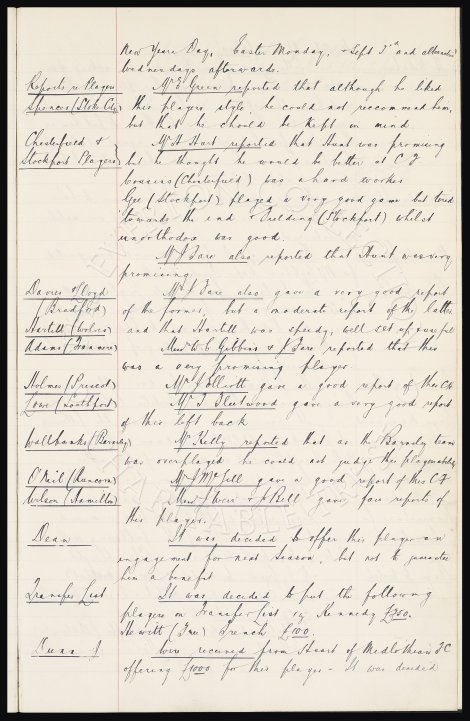 New Years Day, Easter Monday, & Sept 3rd and alternate
Wednesdays afterwards.
Reports re Players
Mr E Green reported that although he liked
Spencer (Stoke City)
this players style, he could not reccommend him,
but that he should be kept in mind.
Chesterfield &
Mr H Hart reported that Hunt was promising
Stockport Players
but he thought he would be better at C F
Cousins (Chesterfield) was a hard worker
Gee (Stockport) played a very good game but tired
towards the end & Fielding (Stockport) whilst
unorthodox was good.
Mr J Fare also reported that Hunt was very
promising
Davies & Lloyd
Mr J Fare also gave a very good report
Bradford)
of the former, but a moderate report of the latter
Hartill (Wolves)
and that Hartill was speedy, well set up & useful
Adams (Tranmere)
Messrs W C Gibbins & J Fare reported that this
was a very promising player
Holmes (Prescot)
Mr J Elliott gave a good report of this C H
Lowe (Southport)
Mr T Fleetwood gave a very good report
of this left back
Wallbanks (Barnsley)
Mr Kelly reported that as the Barnsley team
was overplayed he could not judge this players ability
O'Neil (Runcorn)
Mr J McGill gave a good report of this C F
Wilson (Hamilton)
Messrs Weir & Bell gave fair reports of
this player.
Dean
It was decided to offer this player an
engagement for next season, but not to guarantee
him a benefit
Transfer List
It was decided to put the following
players on Transfer List viz Kennedy £750.
Hewitt (Free) French £100.
Dunn J
Were received from Heart of Medlothian F C
offering £1000 for this player - It was decided